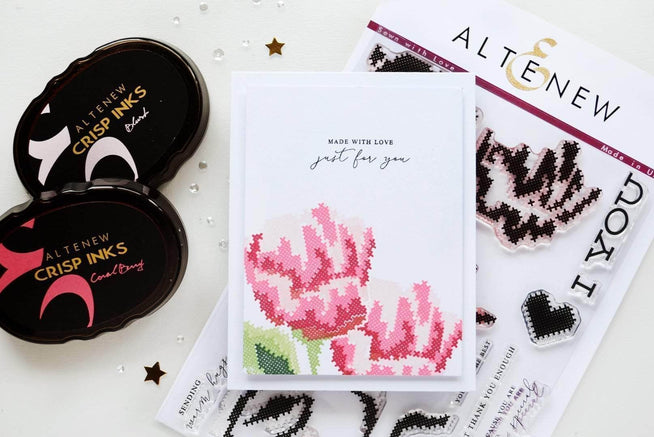 ALTENEW
CRISP INKS
Blush
ALTENEW
CRISP INKS
Coral Berry
MADE WITH LOVE
just for you
Sewn with Love
ALTENEW
Made in U
I YOU
SENDING
warm hugs
BEST
T THANK YOU ENOUGH
YOU ARE
special